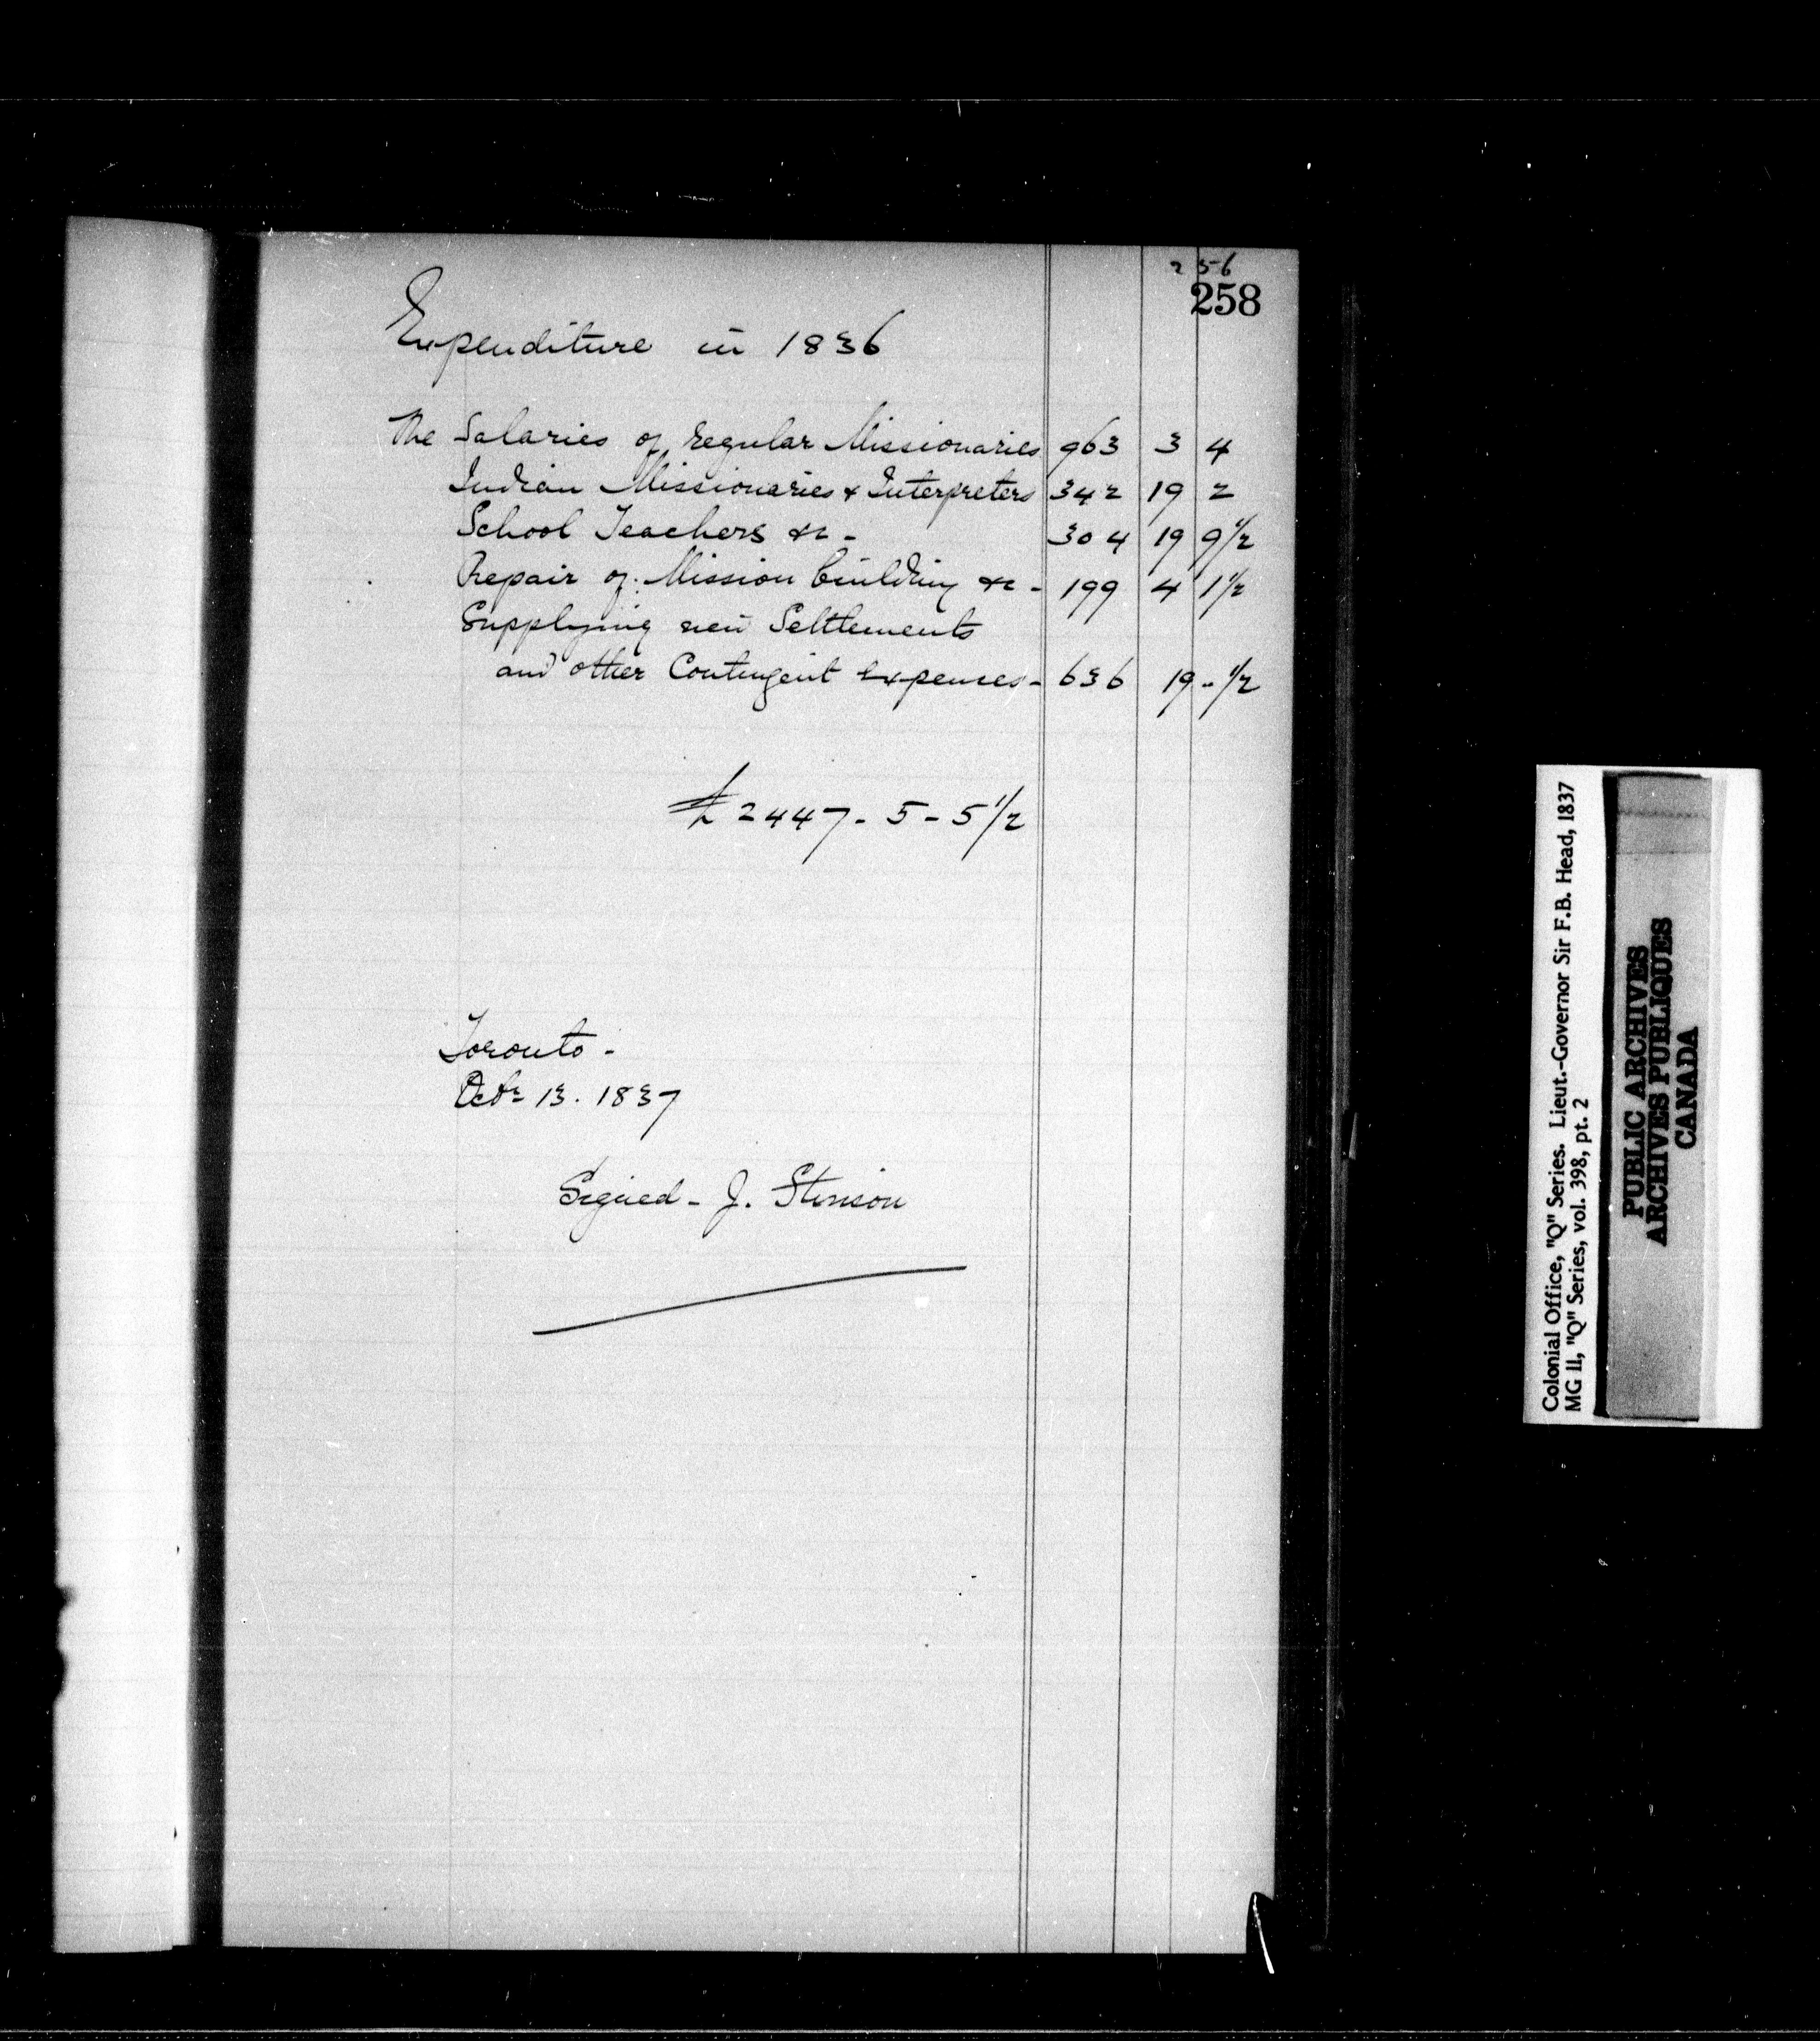 256
258
Expenditure in 1836
The Salaries of regular Missionaries 963 3 4
Indian Missionaries & Interpreters 342 19 2
School Teachers &c - 304 19 9 1/2
Repair of Mission building &c - 199 4 1 1/2
Supplying new Settlements
and other Contingent expences - 636 19 - 1/2
£ 2447 - 5 - 5 1/2
Toronto -
Octr 13. 1837
Signed - J. Stinson
Colonial Office, "Q" Series. Lieut.-Governor Sir F.B. Head, 1837
MG 11, "Q" Series, vol. 398, pt. 2
PUBLIC ARCHIVES
ARCHIVES PUBLIQUES
CANADA